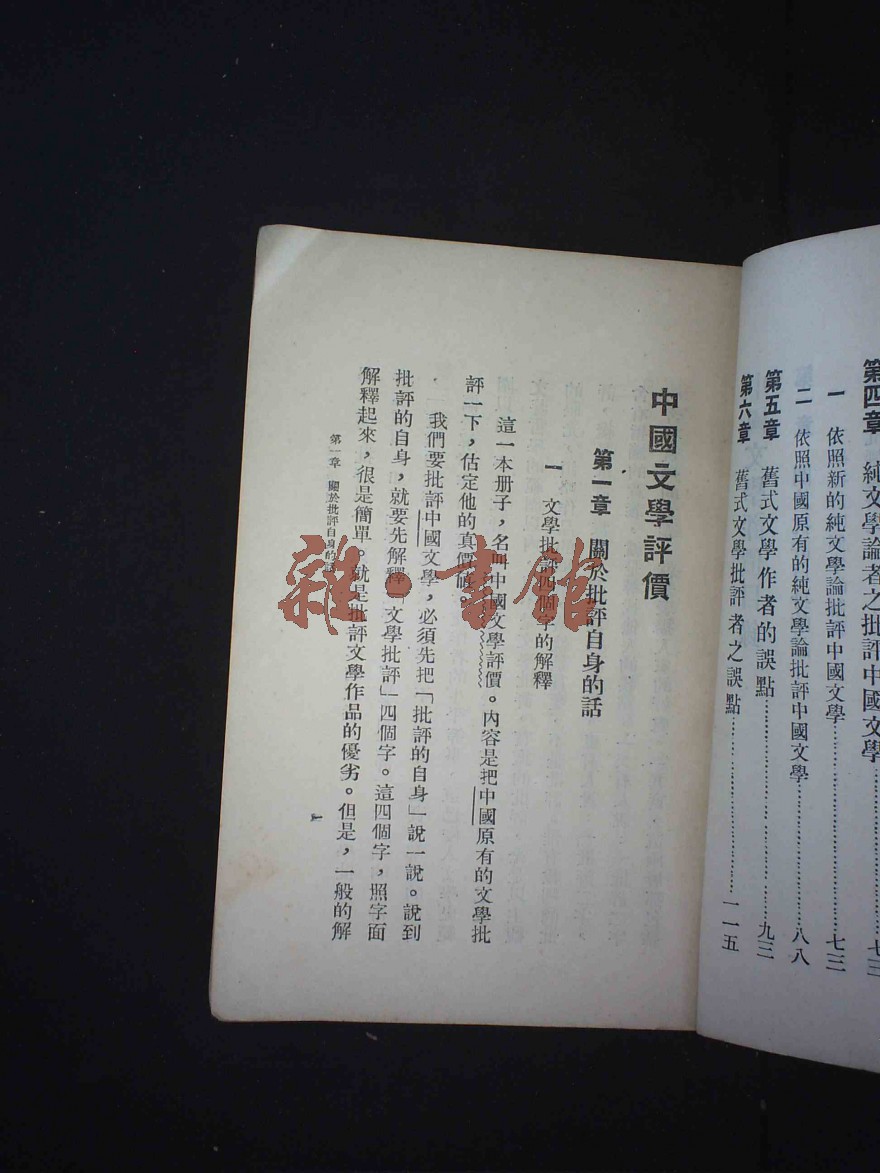 第四章 純文學論者之批評中國文學……七三
一 依照新的純文學論批評中國文學……七三
二 依照中國原有的純文學論批評中國文學……八八
第五章 舊式文學作者的誤點……九三
第六章 舊式文學批評者之誤點……一一五
中國文學評價
第一章 關於批評自身的話
一 文學批評四個字的解釋
這一本册子，名叫中國文學評價。內容是把中國原有的文學批
評一下，估定他的真價值。
我們要批評中國文學，必須先把「批評的自身」說一說。說到
批評的自身，就要先解釋「文學批評」四個字。這四個字，照字面
解釋起來，很是簡單。就是批評文學作品的優劣。但是，一般的解
第一章 關於批評自身的話
一
雜·書館